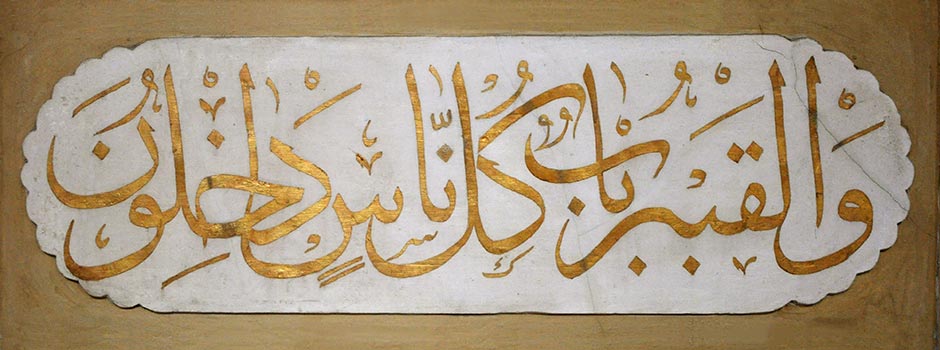 وَالقبر باب كُلُّ نَّاسٍ دَاخِلُونَ